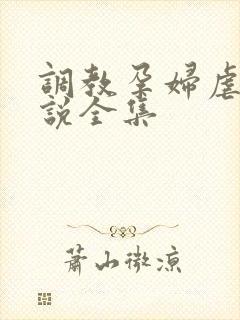 調教孕婦虐
說全集
蕭山微涼